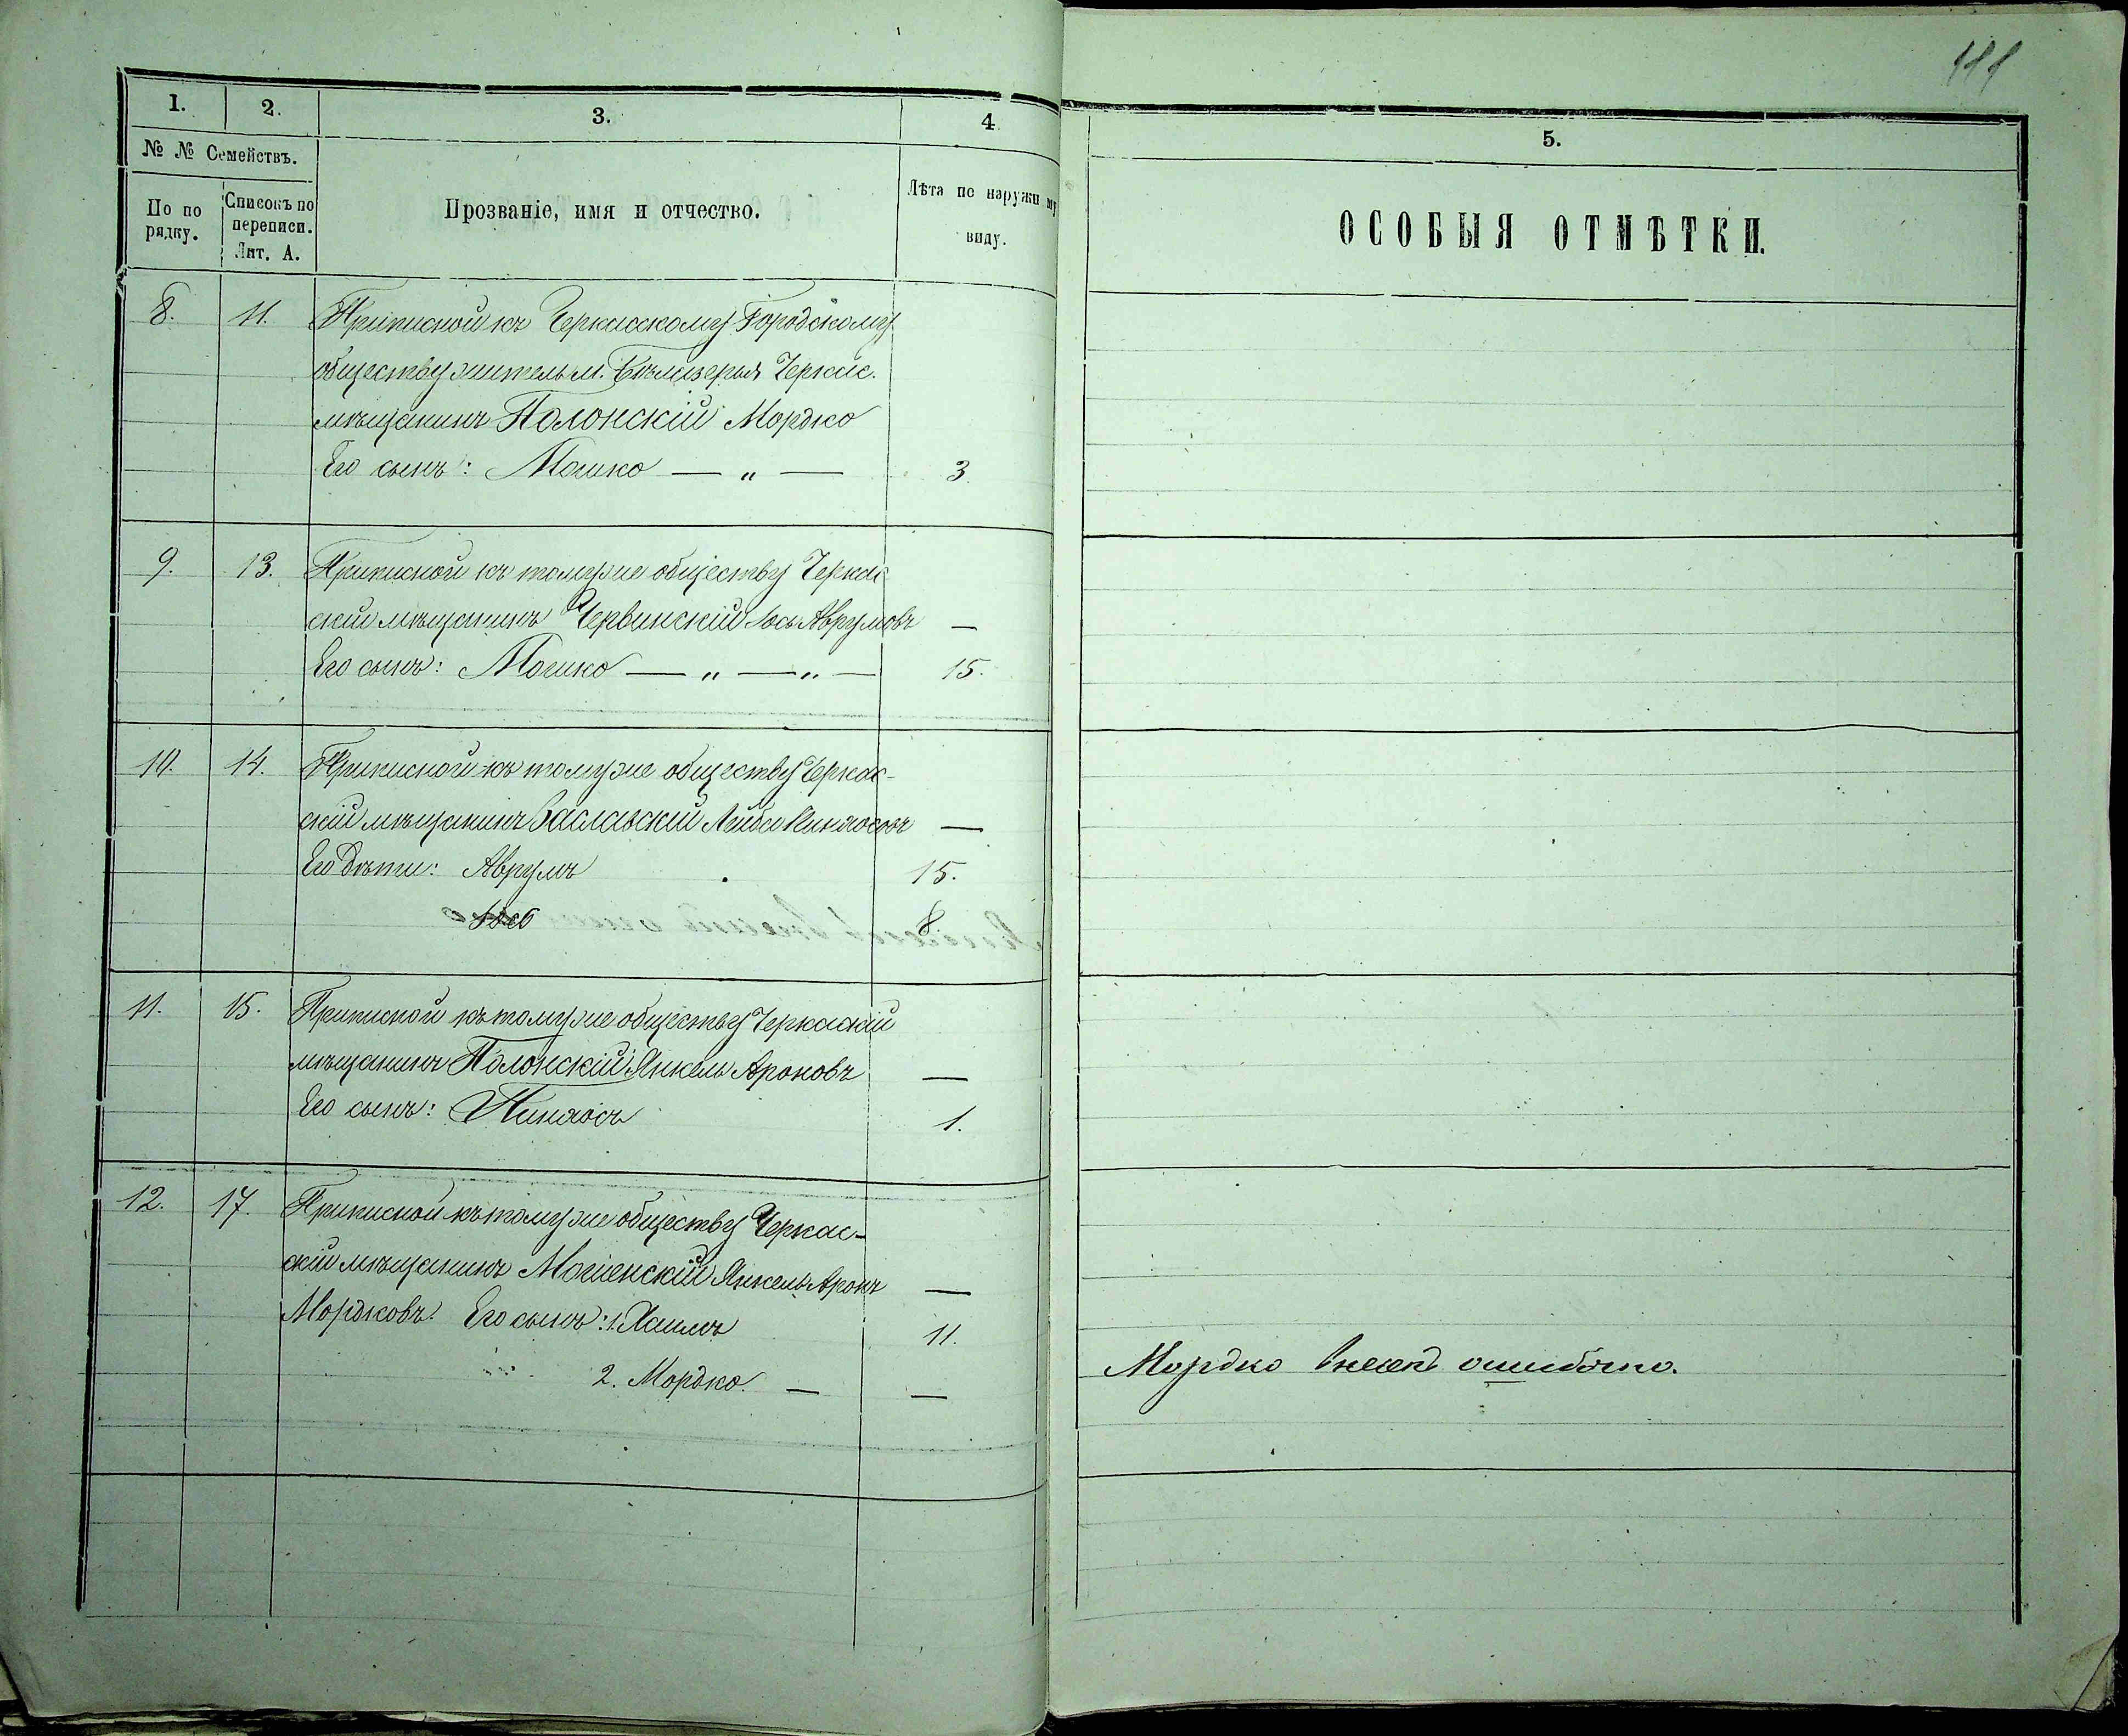 111
1. 2. 3. 4
№ № Семействъ.
По по рядку.
Списокъ по переписи. Лит. А.
Прозваніе, имя и отчество.
Лѣта по наружному виду.
8. 11. Приписной къ Черкасскому Городскому
обществу житель м. Бѣлозерья Черкас.
мѣщанинъ Полонскій Мордко
Его сынъ: Мошко — „ — 3
9. 13. Приписной къ томуже обществу Черкас
скій мѣщанинъ Червинскій Іось Аврумовъ —
Его сынъ: Мошко — „ — „ — 15.
10. 14. Приписной къ томуже обществу Черкас-
скій мѣщанинъ Заславскій Лейба Пинхосовъ —
Его дѣти: Аврумъ 15.
Іосъ 8.
11. 15. Приписной къ томуже обществу Черкаскій
мѣщанинъ Полонскій Янкель Ароновъ —
Его сынъ: Пинхосъ 1.
12. 17. Приписной къ томуже обществу Черкас-
скій мѣщанинъ Могіенскій Янкель Аронъ —
Мордковъ. Его сынъ: 1. Хаимъ 11.
2. Мордко. — —
5.
ОСОБЫЯ ОТМѢТКИ.
Мордко внесенъ ошибочно.